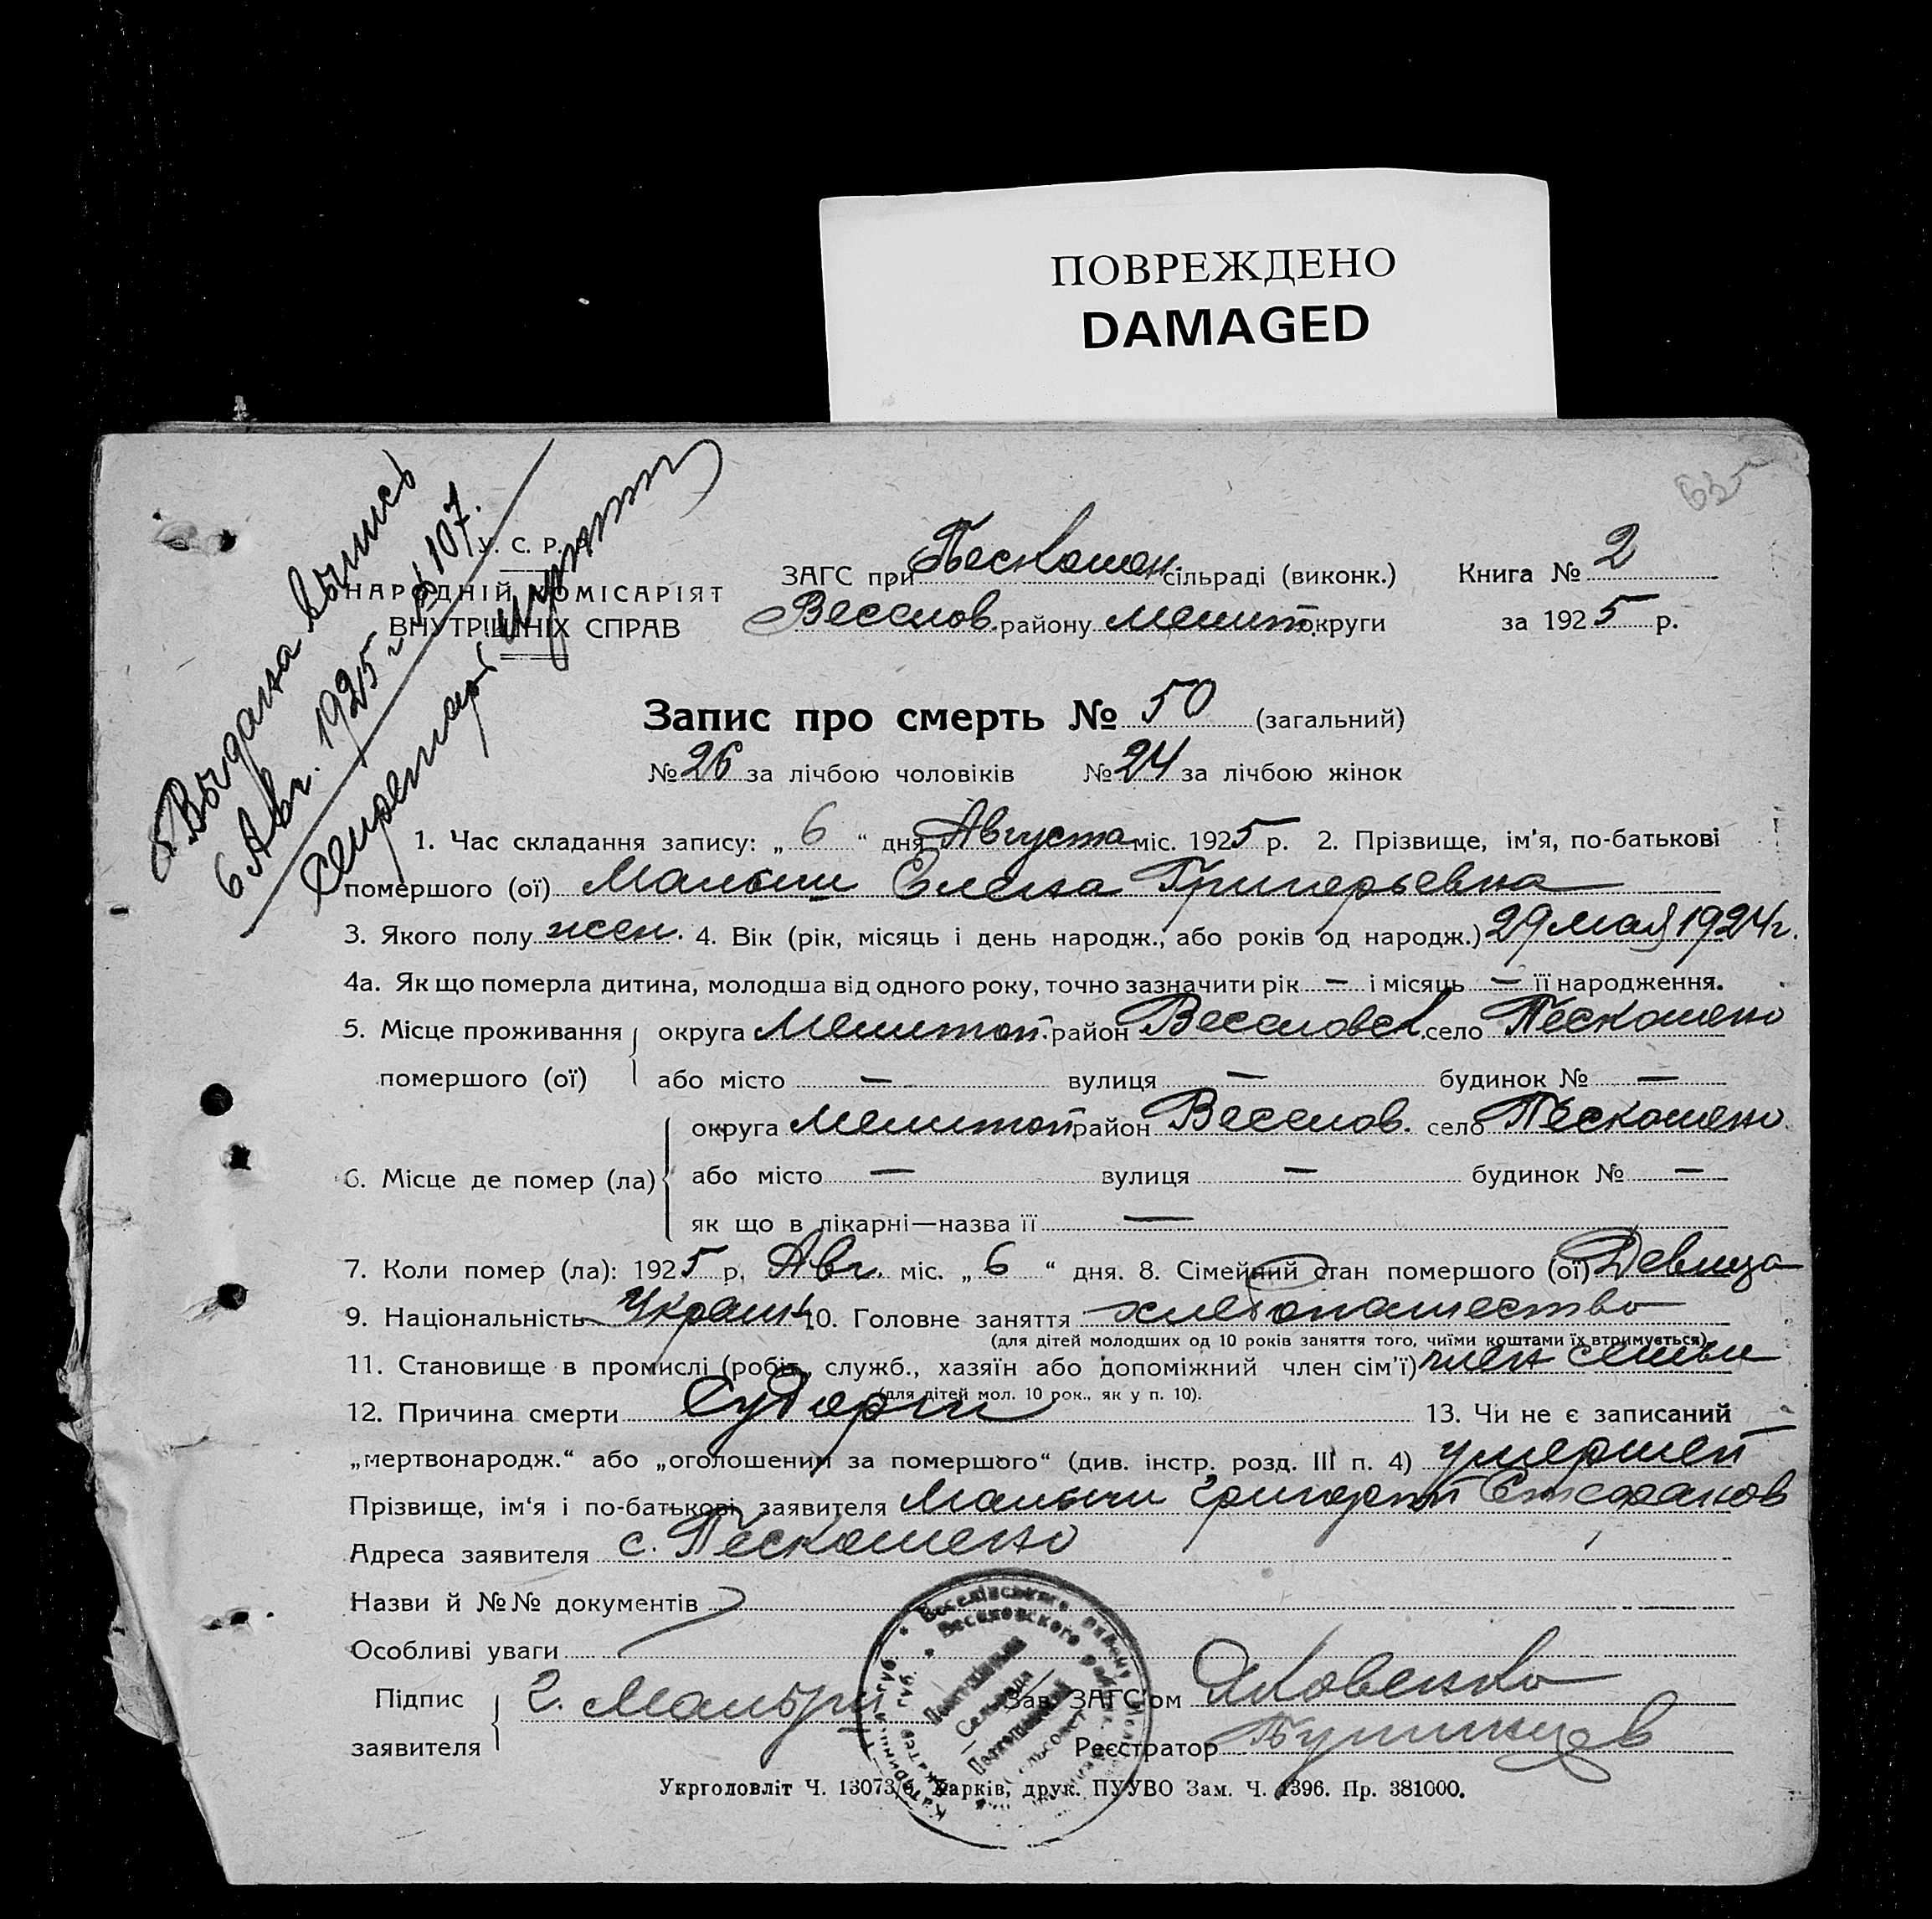 ПОВРЕЖДЕНО
DAMAGED
635
Выдана выпись
6 Авг. 1925 г. № 107.
Секретарь
У. С. Р. Р.
НАРОДНІЙ КОМІСАРІЯТ
ВНУТРІШНІХ СПРАВ
ЗАГС при Пескошин. сільраді (виконк.) Книга № 2
Веселов. району Мелит. округи за 1925 р.
Запис про смерть № 50 (загальний)
№ 26 за лічбою чоловіків № 24 за лічбою жінок
1. Час складання запису: „ 6 “ дня Августа міс. 1925 р. 2. Прізвище, ім'я, по-батькові
помершого (ої) Елена Григорьевна
3. Якого полу жен. 4. Вік (рік, місяць і день народж., або років од народж.) 29 мая 1924 г.
4а. Як що померла дитина, молодша від одного року, точно зазначити рік — і місяць — її народження.
5. Місце проживання округа Мелитоп. район Веселовск. село Пескошено
помершого (ої) або місто — вулиця — будинок № —
округа Мелитоп район Веселов. село Пескошено
6. Місце де помер (ла) або місто — вулиця — будинок № —
як що в лікарні—назва її —
7. Коли помер (ла): 1925 р. Авг. міс. „ 6 “ дня. 8. Сімейний стан помершого (ої) Девица
9. Національність Украин. 10. Головне заняття хлебопашество
(для дітей молодших од 10 років заняття того, чиїми коштами їх втримується)
11. Становище в промислі (робіт., служб., хазяїн або допоміжний член сім'ї) член семьи
(для дітей мол. 10 рок., як у п. 10).
12. Причина смерти Судорги 13. Чи не є записаний
„мертвонародж.“ або „оголошеним за помершого“ (див. інстр. розд. III п. 4) умершей
Прізвище, ім'я і по-батькові заявителя Григорий Стефанов
Адреса заявителя с. Пескошено
Назви й №№ документів
Особливі уваги
Підпис Г. Зав. ЗАГС'ом Яковенко
заявителя Реєстратор
Веселівського району
Веселовского района
Сельрада
Сельсовет
Укрголовліт Ч. 13073/ Харків, друк. ПУУВО Зам. Ч. 1396. Пр. 381000.